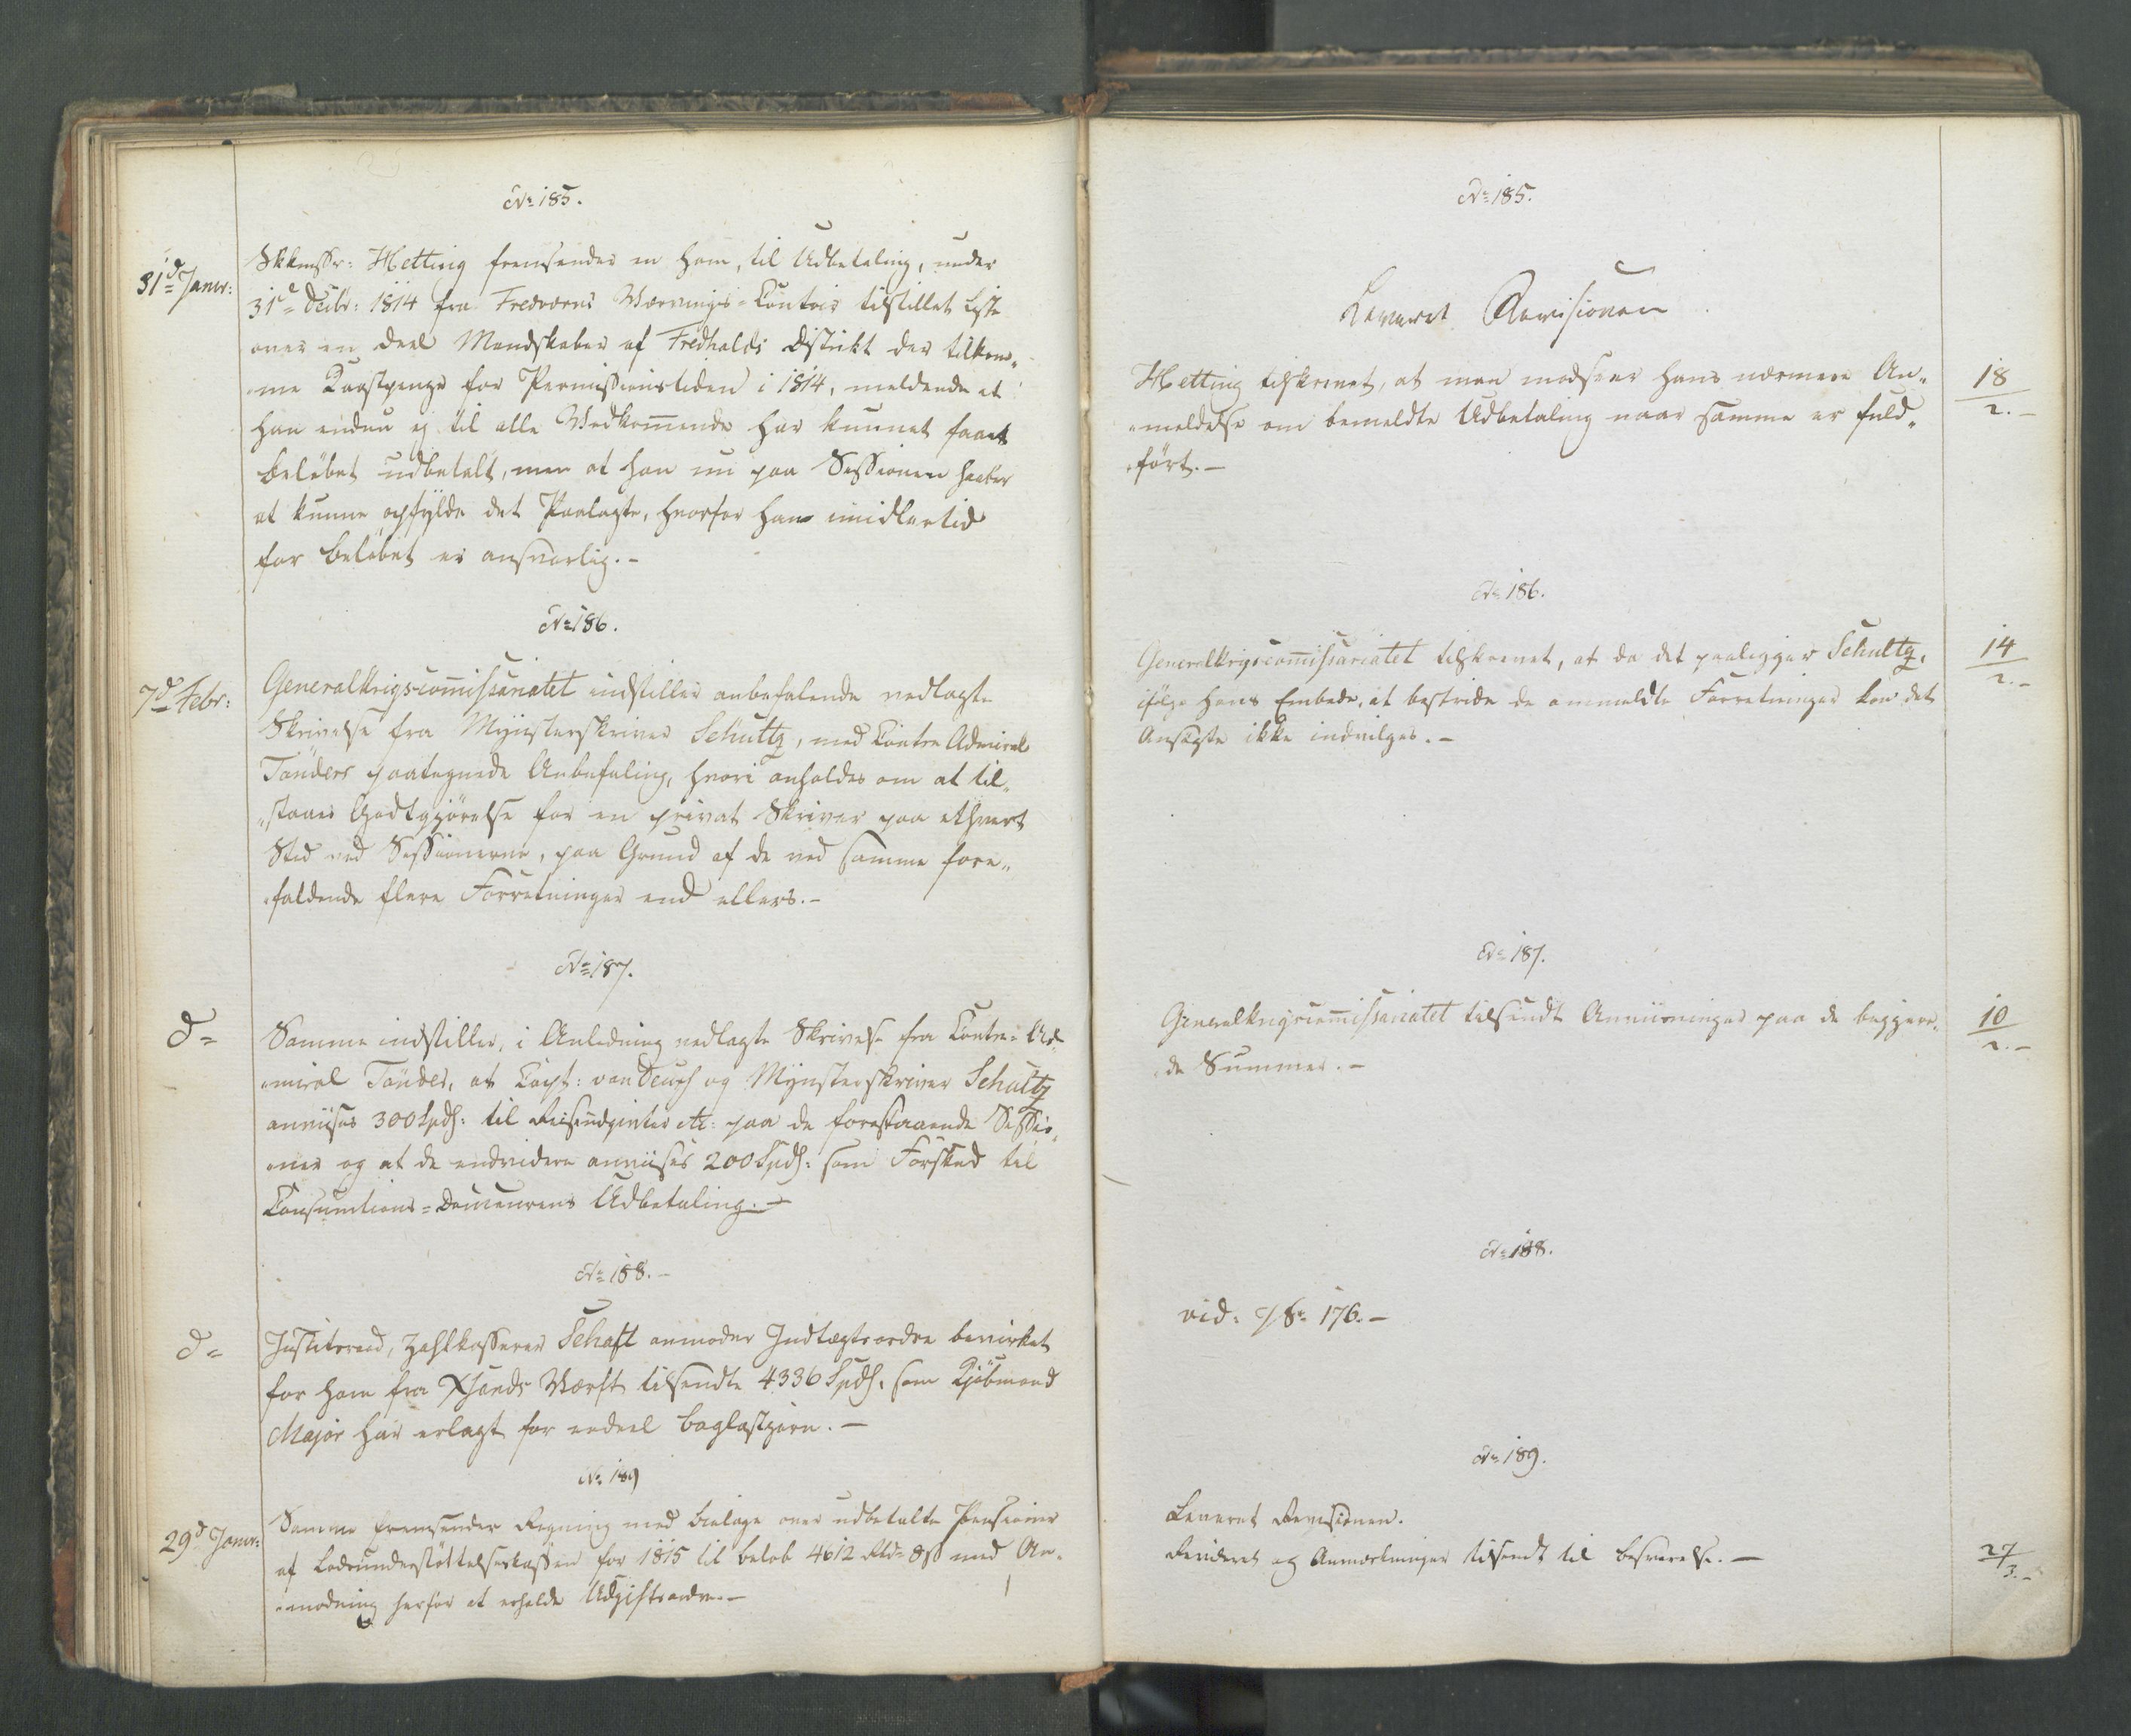 No 185.
31d Janr:
Skkmssr: Hetting fremsender en ham, til Udbetaling, under
31d Decbr: 1814 fra Fredværns Værvnings-Contoir tilstillet Liste
over en Deel Mandskaber af Fredhalds Distrikt der tilkom„
„me Kaastpenge for Permissionstiden i 1814, meldende at
han endnu ej til alle Vedkommende har kunnet faaet
beløbet udbetalt, men at han nu paa Sessionen haaber
at kunne opfylde det Paalagte, hvorfor han imidlertid
for beløbet er ansvarlig. -
No 186.
7d Febr:
Generalkrigscommissariatet indstiller anbefalende vedlagte
Skrivelse fra Mynsterskriver Schultz, med Contre Admiral
Tønders paategnede Anbefaling, hvori anholdes om at til„
„staaes Godtgjørelse for en privat Skriver paa ethvert
Sted ved Sessionerne, paa Grund af de ved samme fore„
„faldende flere Forretninger end ellers. -
No 187.
d =
Samme indstiller, i Anledning vedlagte Skrivelse fra Contre-Ad„
„miral Tønder, at Capt: van Deurs og Mynsterskriver Schultz
anvises 300 Spd: til Reiseudgivter etc: paa de forestaaende Sessio„
„ner og at de endvidere anvises 200 Spd: som Forskud til
Consumtions-Douceurens Udbetaling. -
No 188. -
d =
Justitsraad, Zahlkasserer Schaft anmoder Indtægtsordre bevirket
for ham fra Xsands Værft tilsendte 4336 Spd: som Kjøbmand
Major har erlagt for endeel baglastjern. -
No 189
29d Janr:
Samme fremsender Regning med bielage over udbetalte Pensioner
af Lodsunderstøttelseskassen for 1815 til beløb 4612 Rbd 8 s med An„
„modning herfor at erholde Udgiftsordre. -
No 185.
Leveret Revisionen
Hetting tilskrevet, at man modseer hans nærmere An„
„meldelse om bemeldte Udbetaling naar samme er fuld„
„ført. -
18/2. -
No 186.
Generalkrigscommissariatet tilskrevet, at da det paaligger Schultz,
ifølge hans Embede, at bestride de ommeldte Forretninger kan det
Ansøgte ikke indvilges. -
14/2. -
No 187.
Generalkrigscommissariatet tilsendt Anviisninger paa de begjere„
„de Summer. -
10/2. -
No 188.
vid: 176. -
No 189.
Leveret Revisionen.
Revideret og Anmærkninger tilsendt til besvarelse. -
27/3. -